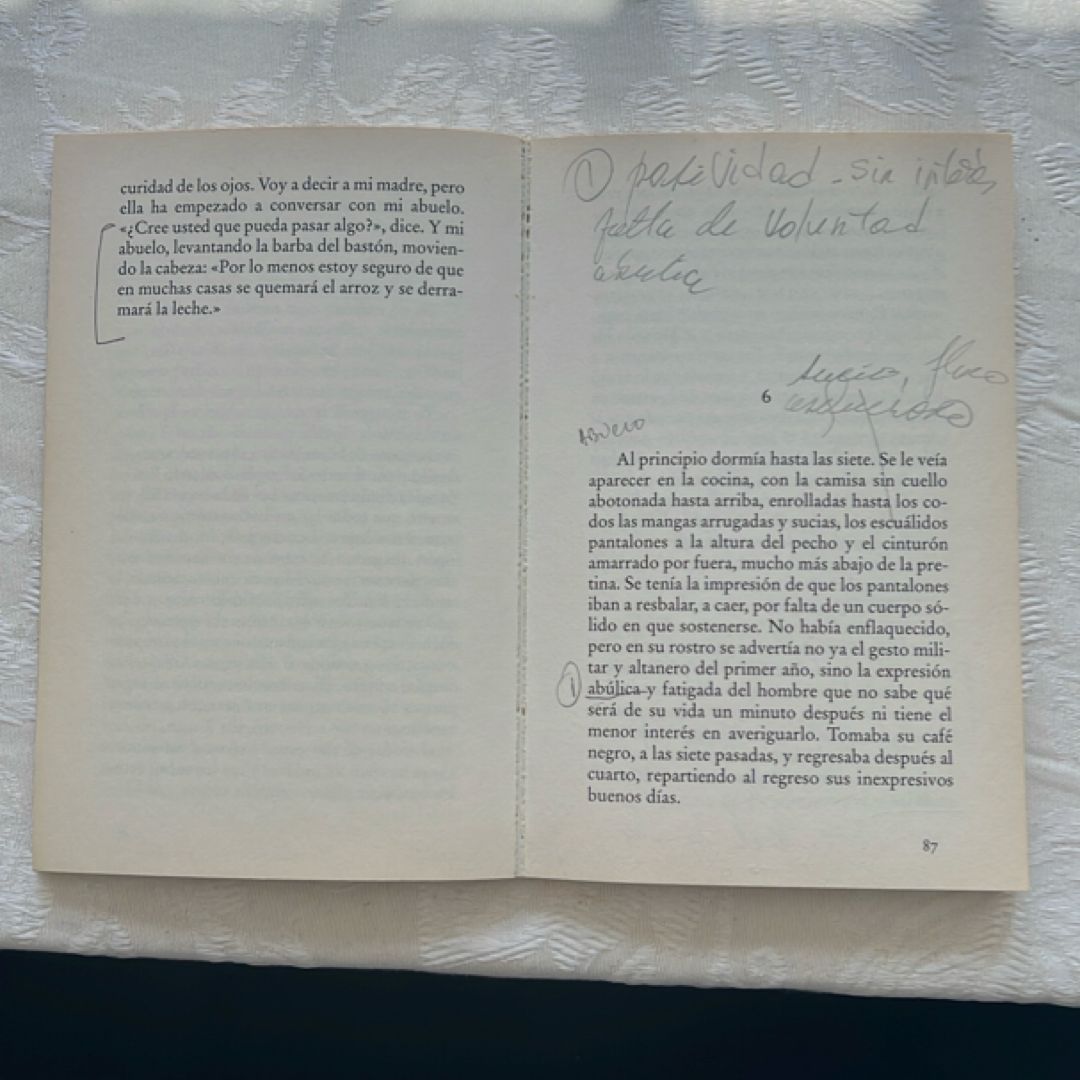 curidad de los ojos. Voy a decir a mi madre, pero
ella ha empezado a conversar con mi abuelo.
«¿Cree usted que pueda pasar algo?», dice. Y mi
abuelo, levantando la barba del bastón, movien-
do la cabeza: «Por lo menos estoy seguro de que
en muchas casas se quemará el arroz y se derra-
mará la leche.»
① pasividad - sin interés,
falta de voluntad
sucio, flaco
6
ABUELO
Al principio dormía hasta las siete. Se le veía
aparecer en la cocina, con la camisa sin cuello
abotonada hasta arriba, enrolladas hasta los co-
dos las mangas arrugadas y sucias, los escuálidos
pantalones a la altura del pecho y el cinturón
amarrado por fuera, mucho más abajo de la pre-
tina. Se tenía la impresión de que los pantalones
iban a resbalar, a caer, por falta de un cuerpo só-
lido en que sostenerse. No había enflaquecido,
pero en su rostro se advertía no ya el gesto mili-
tar y altanero del primer año, sino la expresión
① abúlica y fatigada del hombre que no sabe qué
será de su vida un minuto después ni tiene el
menor interés en averiguarlo. Tomaba su café
negro, a las siete pasadas, y regresaba después al
cuarto, repartiendo al regreso sus inexpresivos
buenos días.
87